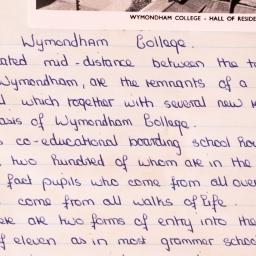 WYMONDHAM COLLEGE - HALL OF RESIDE
Wymondham College.
ated mid-distance between the t
Wymondham, are the remnants of a
which together with several new
asis of Wymondham College.
co-educational boarding school
two hundred of whom are in the
fact pupils who come from all over
come from all walks of life.
are two forms of entry into the
of eleven as in most grammer schoo